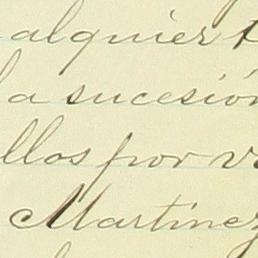 alquier t
la sucesión
llos por v
Martinez